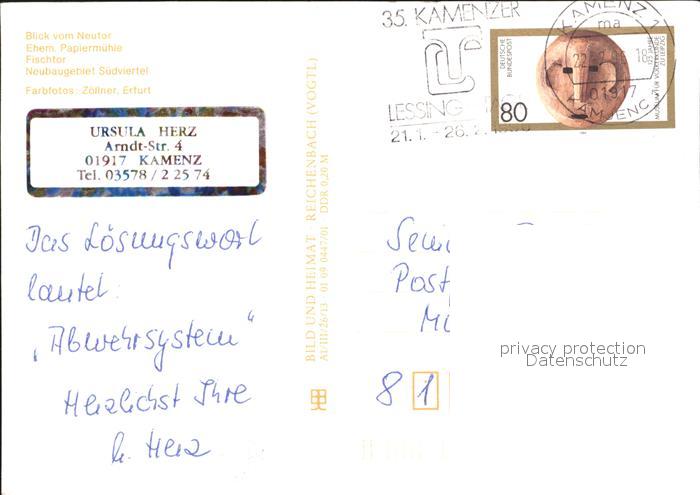 Blick vom Neutor
Ehem. Papiermühle
Fischtor
Neubaugebiet Südviertel
Farbfotos: Zöllner, Erfurt
URSULA HERZ
Arndt-Str. 4
01917 KAMENZ
Tel. 03578 / 2 25 74
Das Lösungswort
lautet:
„Abwehrsystem“
Herzlichst Ihre
U. Herz
BILD UND HEIMAT REICHENBACH (VOGTL)
A1/III/26/13 01 09 0447/01 DDR 0,20 M
35. KAMENZER
LESSING
21.1. - 26.2.
DEUTSCHE
BUNDESPOST
80
125 JAHRE
MUSEUM FÜR VÖLKERKUNDE
ZU LEIPZIG
KAMENZ 1
ma
01917
KAMJENC
Post
81
privacy protection
Datenschutz